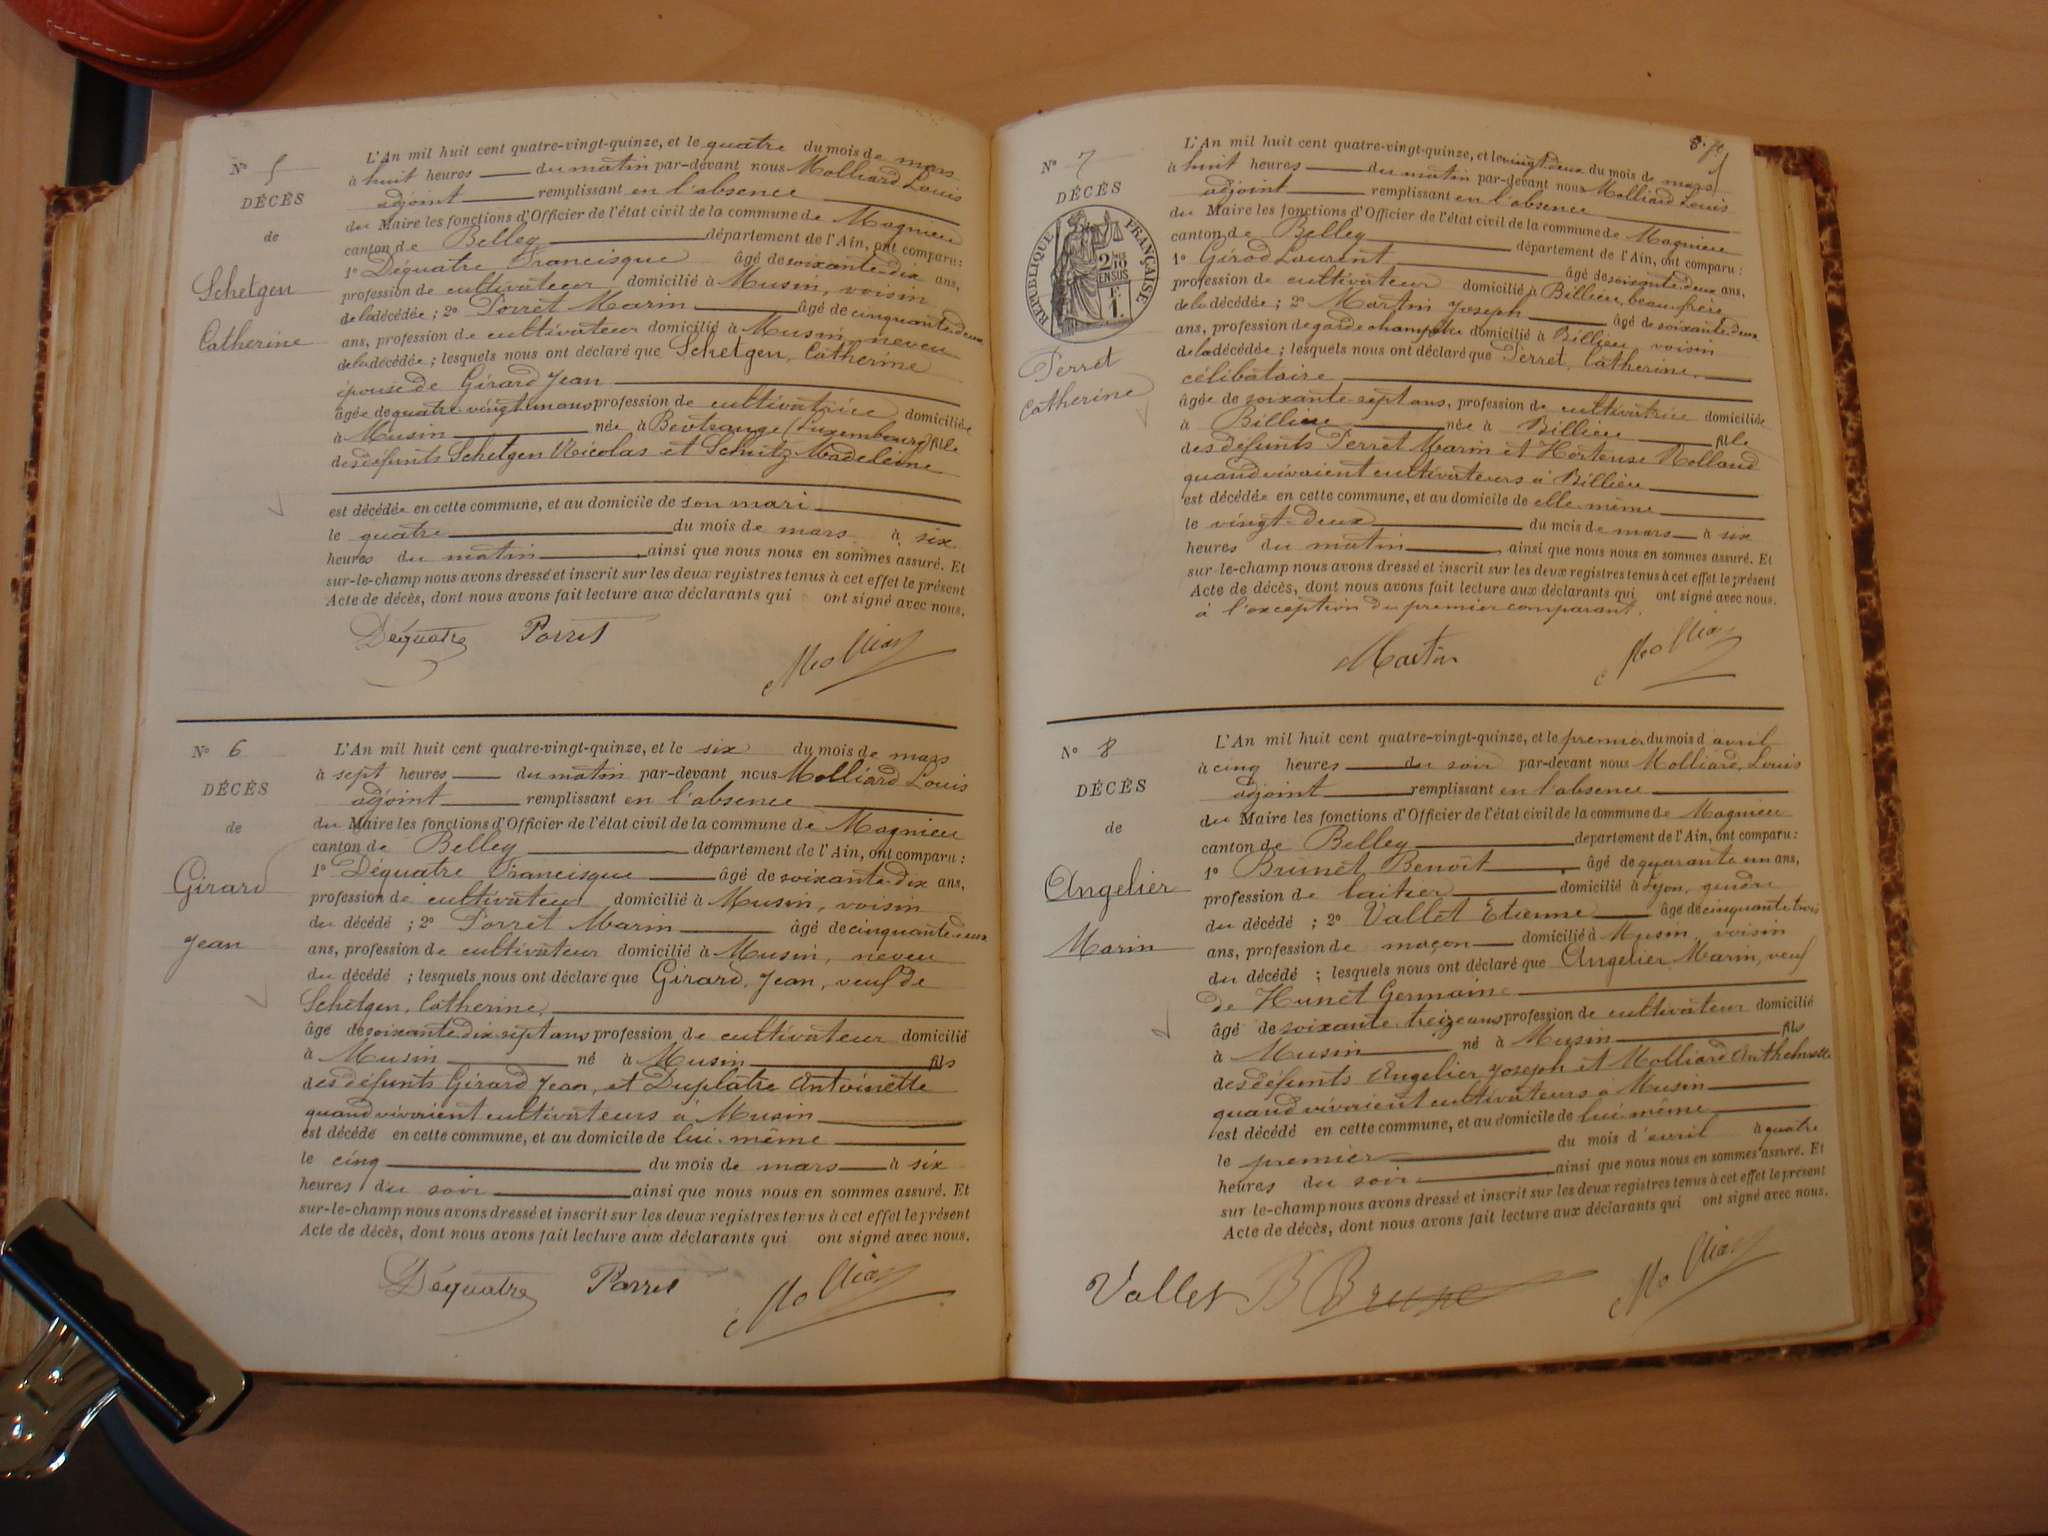 N° 5
DÉCÈS
de
Schetgen
Catherine
L'An mil huit cent quatre-vingt-quinze, et le quatre du mois de mars
à huit heures du matin par-devant nous Molliard Louis
adjoint remplissant en l'absence
du Maire les fonctions d'Officier de l'état civil de la commune de Magnieu
canton de Belley département de l'Ain, ont comparu :
1° Déquatre Francisque âgé de soixante-dix ans,
profession de cultivateur domicilié à Musin, voisin
de la décédée ; 2° Porret Marin âgé de cinquante-deux
ans, profession de cultivateur domicilié à Musin, neveu
de la décédée ; lesquels nous ont déclaré que Schetgen, Catherine
épouse de Girard Jean
âgée de quatre-vingt un ans profession de cultivatrice domiciliée
à Musin née à (Luxembourg) fille
des défunts Schetgen Nicolas et Schutz Madeleine
est décédée en cette commune, et au domicile de son mari
le quatre du mois de mars à six
heures du matin ainsi que nous nous en sommes assuré. Et
sur-le-champ nous avons dressé et inscrit sur les deux registres tenus à cet effet le présent
Acte de décès, dont nous avons fait lecture aux déclarants qui ont signé avec nous.
Déquatre Porret Molliard
N° 6
DÉCÈS
de
Girard
Jean
L'An mil huit cent quatre-vingt-quinze, et le six du mois de mars
à sept heures du matin par-devant nous Molliard Louis
adjoint remplissant en l'absence
du Maire les fonctions d'Officier de l'état civil de la commune de Magnieu
canton de Belley département de l'Ain, ont comparu :
1° Déquatre Francisque âgé de soixante-dix ans,
profession de cultivateur domicilié à Musin, voisin
du décédé ; 2° Porret Marin âgé de cinquante-deux
ans, profession de cultivateur domicilié à Musin, neveu
du décédé ; lesquels nous ont déclaré que Girard, Jean, veuf de
Schetgen, Catherine,
âgé de soixante dix-sept ans profession de cultivateur domicilié
à Musin né à Musin fils
des défunts Girard Jean, et Duplâtre Antoinette
quand vivaient cultivateurs à Musin
est décédé en cette commune, et au domicile de lui-même
le cinq du mois de mars à six
heures du soir ainsi que nous nous en sommes assuré. Et
sur-le-champ nous avons dressé et inscrit sur les deux registres tenus à cet effet le présent
Acte de décès, dont nous avons fait lecture aux déclarants qui ont signé avec nous.
Déquatre Porret Molliard
N° 7
DÉCÈS
RÉPUBLIQUE FRANÇAISE
2 10 EN SUS
1 F.
Perret
Catherine
L'An mil huit cent quatre-vingt-quinze, et le vingt-deux du mois de mars
à huit heures du matin par-devant nous Molliard Louis
adjoint remplissant en l'absence
du Maire les fonctions d'Officier de l'état civil de la commune de Magnieu
canton de Belley département de l'Ain, ont comparu :
1° Girod Laurent âgé de soixante-deux ans,
profession de cultivateur domicilié à Billieu, beau-frère
de la décédée ; 2° Martin Joseph âgé de soixante-deux
ans, profession de garde champêtre domicilié à Billieu, voisin
de la décédée ; lesquels nous ont déclaré que Perret, Catherine,
célibataire
âgée de soixante-sept ans, profession de cultivatrice domiciliée
à Billieu née à Billieu fille
des défunts Perret Marin et Hortense Rolland
quand vivaient cultivateurs à Billieu
est décédée en cette commune, et au domicile de elle-même
le vingt-deux du mois de mars à six
heures du matin ainsi que nous nous en sommes assuré. Et
sur-le-champ nous avons dressé et inscrit sur les deux registres tenus à cet effet le présent
Acte de décès, dont nous avons fait lecture aux déclarants qui ont signé avec nous.
à l'exception du premier comparant.
Martin Molliard
N° 8
DÉCÈS
de
Angelier
Marin
L'An mil huit cent quatre-vingt-quinze, et le premier du mois d'avril
à cinq heures du soir par-devant nous Molliard, Louis
adjoint remplissant en l'absence
du Maire les fonctions d'Officier de l'état civil de la commune de Magnieu
canton de Belley département de l'Ain, ont comparu :
1° Brunet Benoît âgé de quarante un ans,
profession de laitier domicilié à Lyon, gendre
du décédé ; 2° Vallet Etienne âgé de cinquante trois
ans, profession de maçon domicilié à Musin, voisin
du décédé ; lesquels nous ont déclaré que Angelier, Marin, veuf
de Hunet Germaine
âgé de soixante-treize ans profession de cultivateur domicilié
à Musin né à Musin fils
des défunts Angelier Joseph et Molliard Anthelmette
quand vivaient cultivateurs à Musin
est décédé en cette commune, et au domicile de lui-même
le premier du mois d'avril à quatre
heures du soir ainsi que nous nous en sommes assuré. Et
sur-le-champ nous avons dressé et inscrit sur les deux registres tenus à cet effet le présent
Acte de décès, dont nous avons fait lecture aux déclarants qui ont signé avec nous.
Vallet B Brunet Molliard